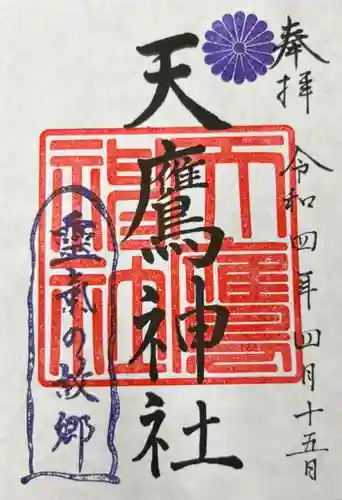 奉拝
令和四年四月十五日
天鷹神社
天鷹神社
霊気の故郷